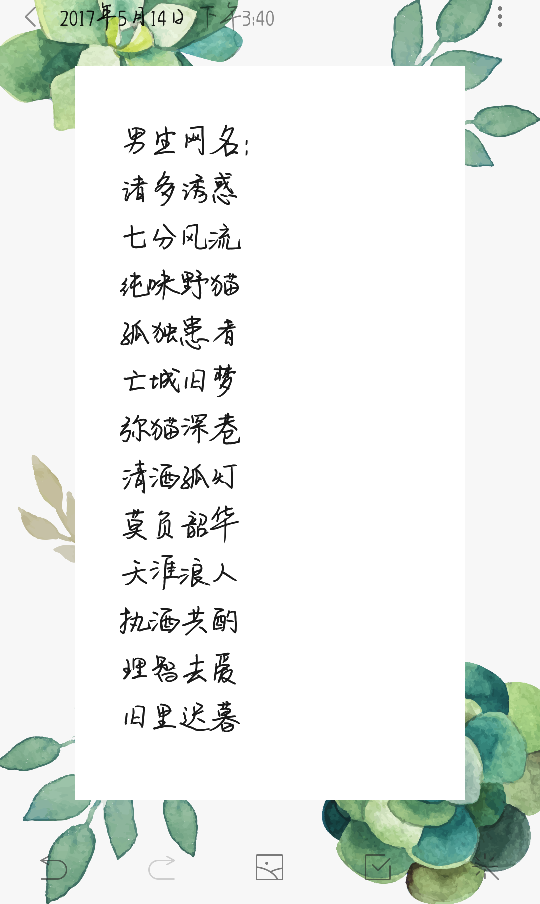 2017年5月14日 下午3:40
男生网名:
诸多诱惑
七分风流
纯味野猫
孤独患者
亡城旧梦
弥猫深巷
清酒孤灯
莫负韶华
天涯浪人
执酒共酌
理智去爱
旧里迟暮